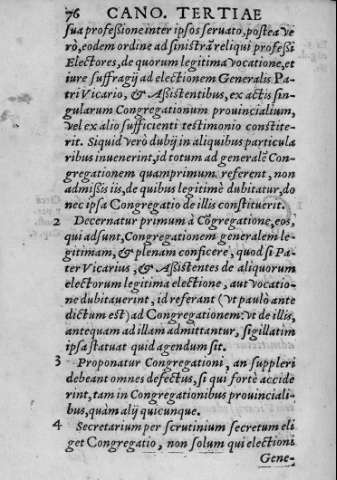 76 CANO. TERTIAE
sua professione inter ipsos seruato, postea ve
rò, eodem ordine ad sinistrã reliqui professi
Electores, de quorum legitima vocatione, et
iure suffragij ad electionem Generalis Pa-
tri Vicario, & Assistentibus, ex actis sin-
gularum Congregationum prouincialium,
vel ex alio sufficienti testimonio constite-
rit. Siquid verò dubij in aliquibus particula
ribus inuenerint, id totum ad generalẽ Con-
gregationem quamprimum referent, non
admissis iis, de quibus legitimè dubitatur, do
nec ipsa Congregatio de illis constituerit.
2 Decernatur primum à Cõgregatione, eos,
qui adsunt, Congregationem generalem le-
gitimam, & plenam conficere, quod si Pa-
ter Vicarius, & Assistentes de aliquorum
electorum legitima electione, aut vocatio-
ne dubitauerint, id referant (vt paulò ante
dictum est) ad Congregationem: vt de illis,
antequam ad illam admittantur, sigillatim
ipsa statuat quid agendum sit.
3 Proponatur Congregationi, an suppleri
debeant omnes defectus, si qui fortè accide
rint, tam in Congregationibus prouinciali-
bus, quàm alij quicunque.
4 Secretarium per scrutinium secretum eli
get Congregatio, non solum qui electioni
Gene-